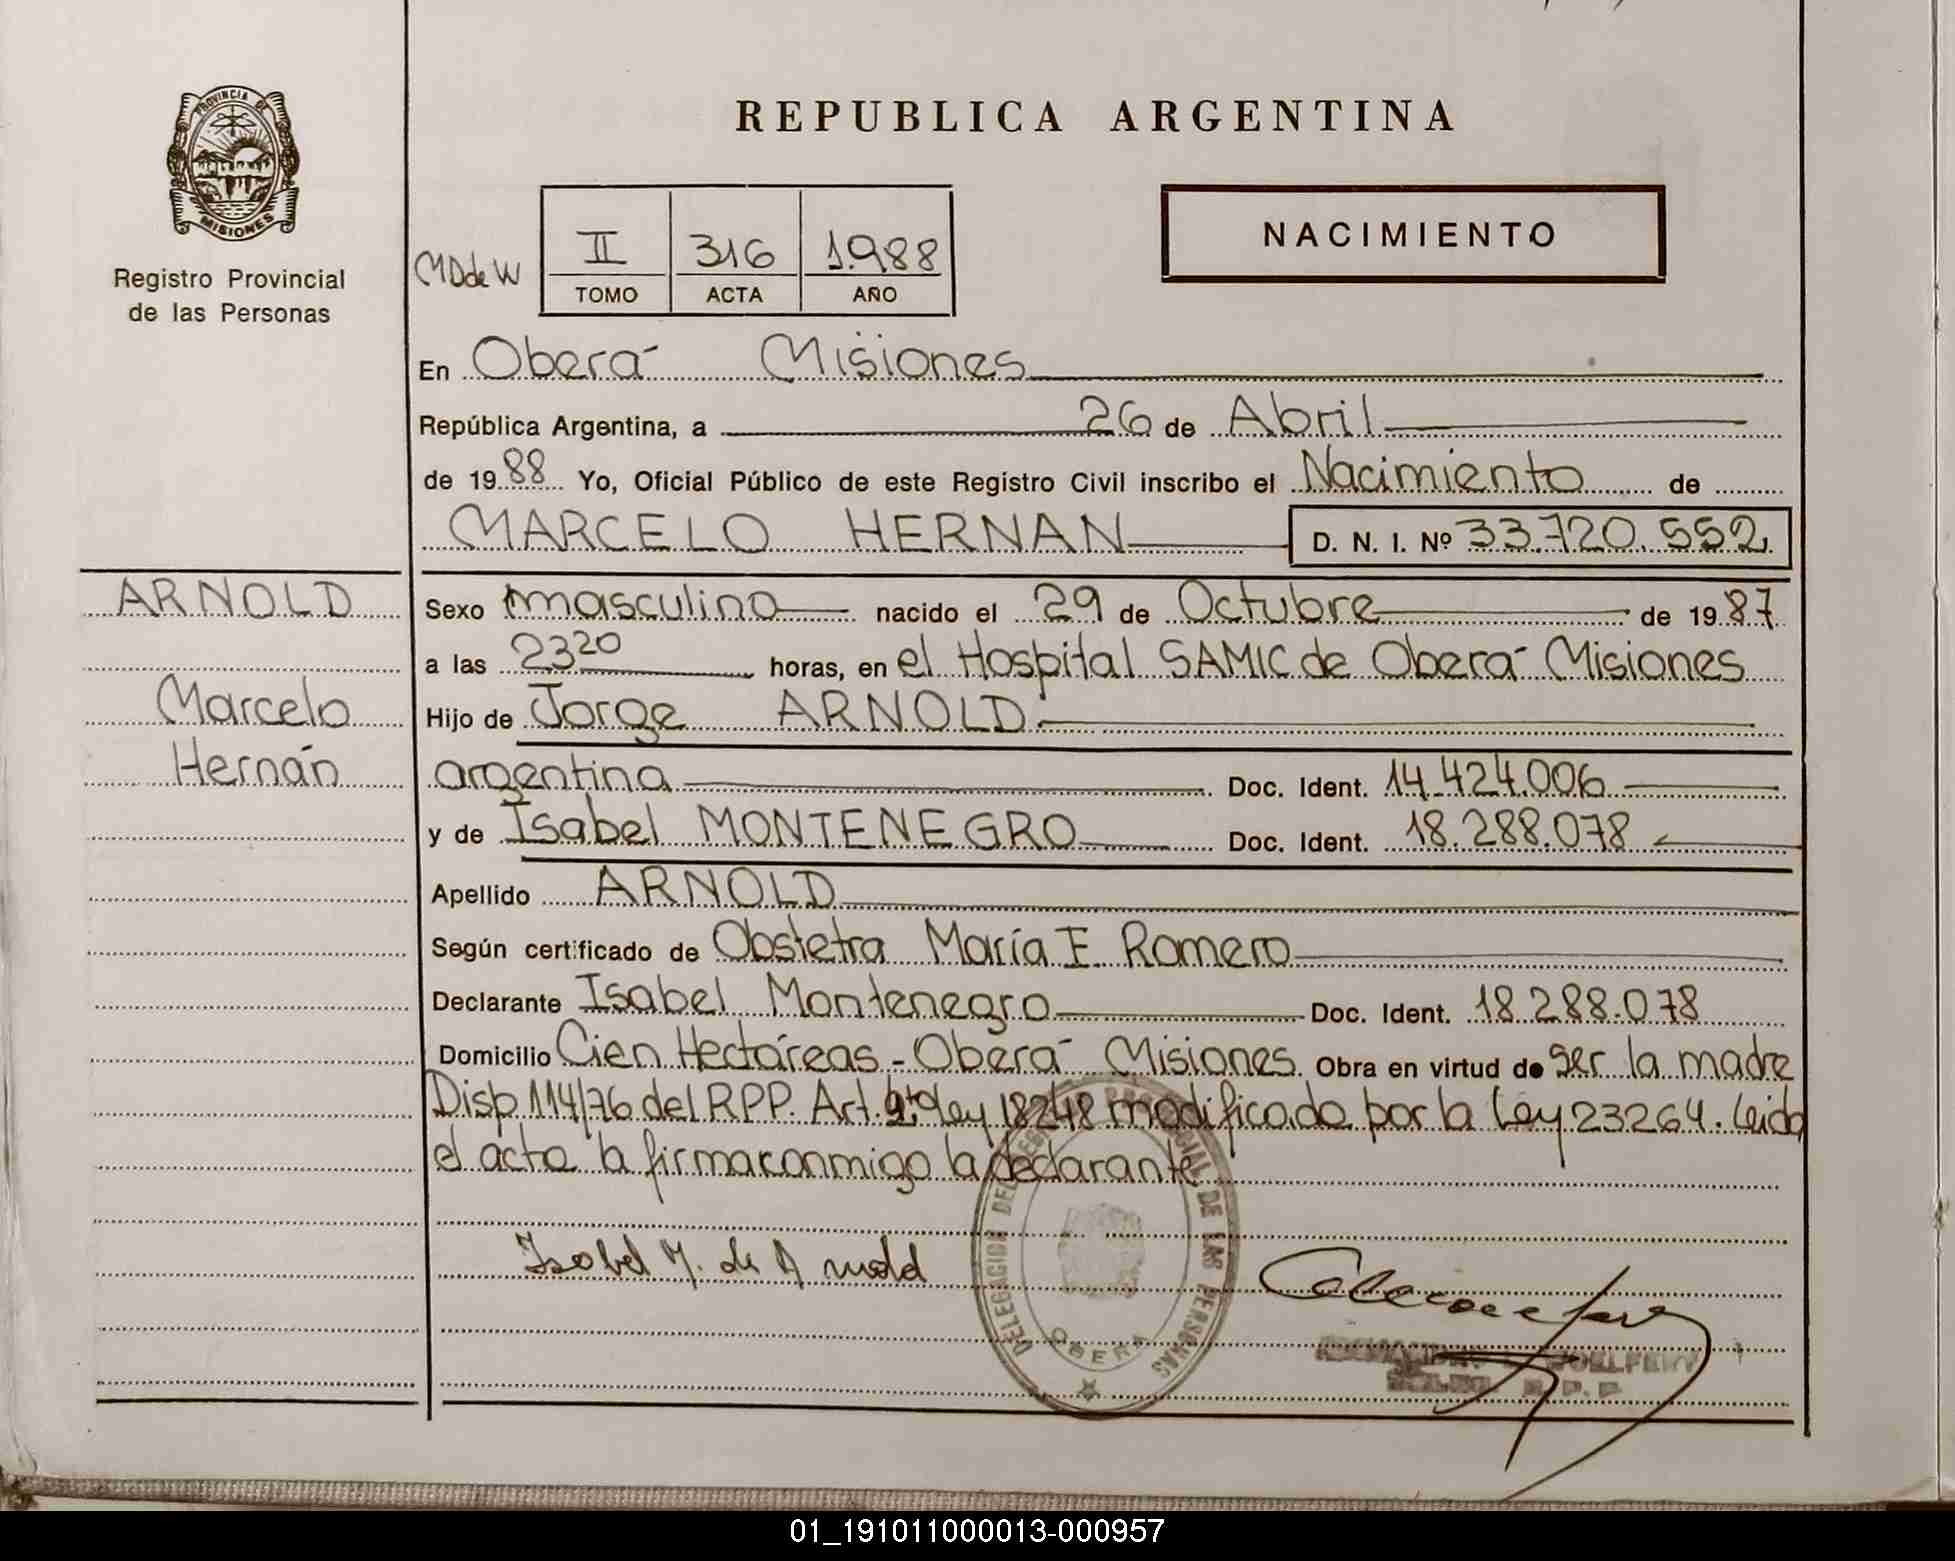 REPUBLICA ARGENTINA
PROVINCIA DE
MISIONES
Registro Provincial
de las Personas
NACIMIENTO
MDdeW
II 316 1.988
TOMO ACTA AÑO
En Oberá Misiones
República Argentina, a 26 de Abril
de 1988 Yo, Oficial Público de este Registro Civil inscribo el Nacimiento de
MARCELO HERNAN D. N. I. Nº 33.720.552
ARNOLD
Marcelo
Hernán
Sexo masculino nacido el 29 de Octubre de 1987
a las 23 20 horas, en el Hospital SAMIC de Oberá Misiones
Hijo de Jorge ARNOLD
argentina Doc. Ident. 14.424.006
y de Isabel MONTENEGRO Doc. Ident. 18.288.078
Apellido ARNOLD
Según certificado de Obstetra María E. Romero
Declarante Isabel Montenegro Doc. Ident. 18.288.078
Domicilio Cien Hectáreas - Oberá Misiones Obra en virtud de ser la madre
Disp 114/76 del R.P.P. Art. Ley 18248 modificado por la Ley 23264. Leida
el acta la firma conmigo la declarante
Isabel M. de Arnold
DELEGACION DEL REGISTRO PROVINCIAL DE LAS PERSONAS
OBERA
R. P. P.
01_191011000013-000957